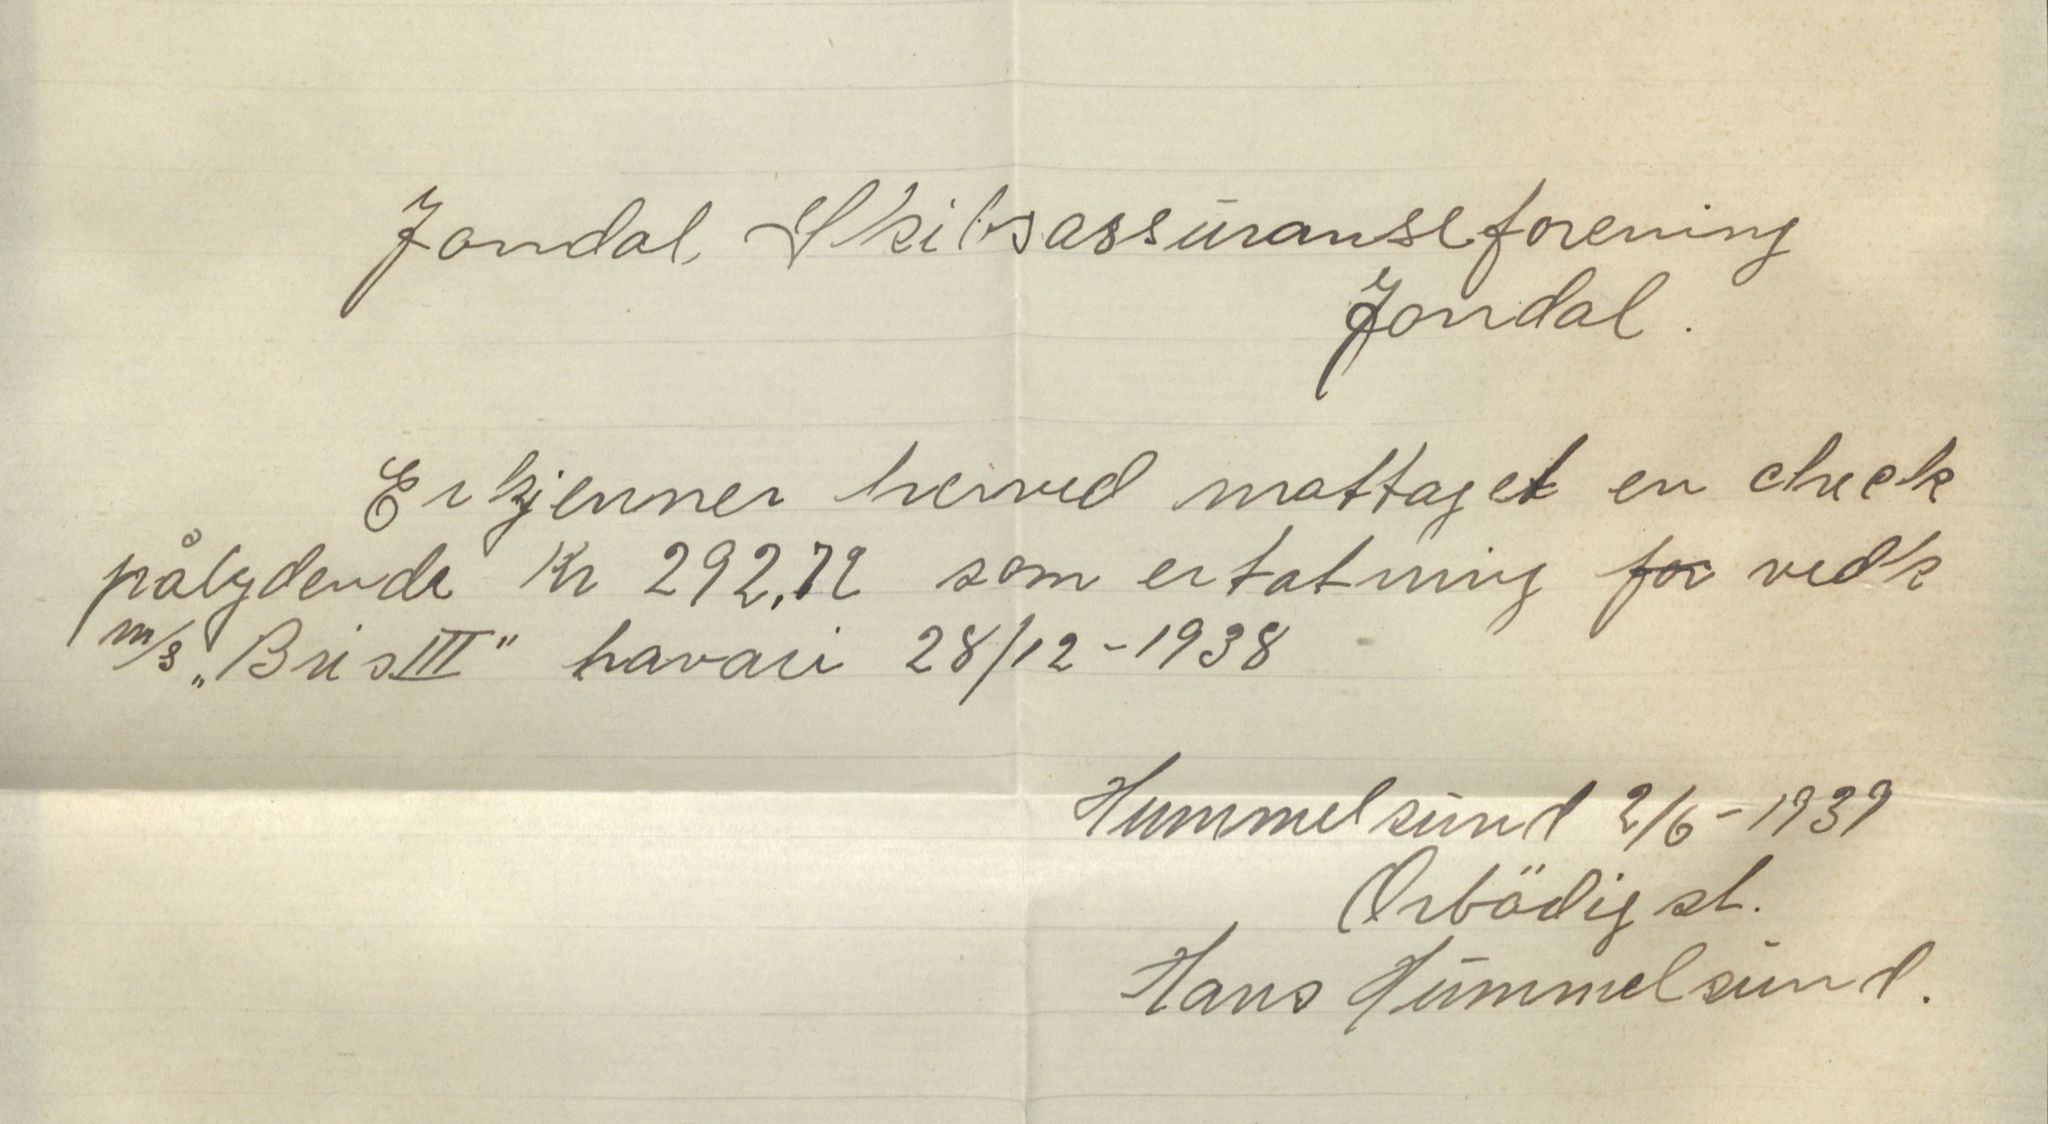 Jondal, Skibsassuranseforening
Jondal.
Erkjenner herved mottaget en check
pålydende Kr 292,72 som ertatning for vedk
m/s „Bris III" havari 28/12-1938
Hummelsund 2/6-1939
Örbödigst.
Hans Hummelsund.